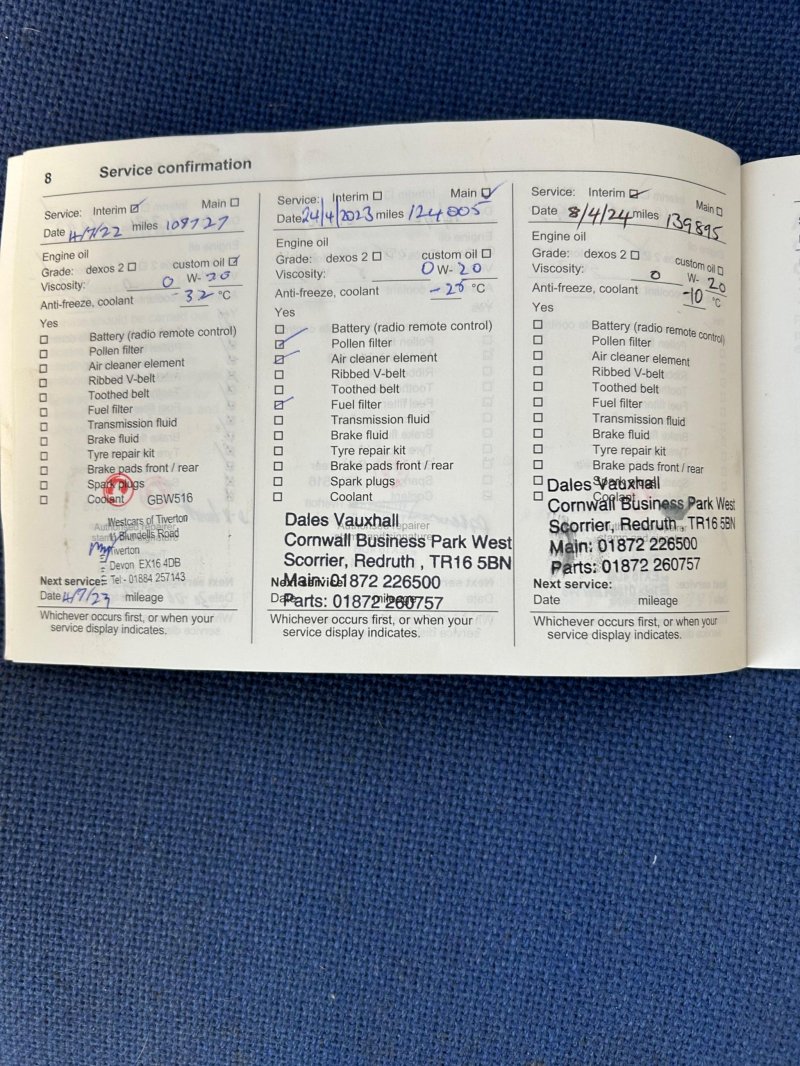 8 Service confirmation
Service: Interim ☑ Main ☐
Date 4/7/22 miles 108727
Engine oil
Grade: dexos 2 ☐ custom oil ☑
Viscosity: 0 W- 20
Anti-freeze, coolant -32 °C
Yes
☐ Battery (radio remote control)
☐ Pollen filter
☐ Air cleaner element
☐ Ribbed V-belt
☐ Toothed belt
☐ Fuel filter
☐ Transmission fluid
☐ Brake fluid
☐ Tyre repair kit
☐ Brake pads front / rear
☐ Spark plugs
☐ Coolant GBW516
Authorised repairer
Westcars of Tiverton
11 Blundells Road
Tiverton
Devon EX16 4DB
Tel - 01884 257143
Next service:
Date 4/7/23 mileage
Whichever occurs first, or when your
service display indicates.
Service: Interim ☐ Main ☑
Date 24/4/2023 miles 124005
Engine oil
Grade: dexos 2 ☐ custom oil ☐
Viscosity: 0 W- 20
Anti-freeze, coolant -25 °C
Yes
☐ Battery (radio remote control)
☑ Pollen filter
☑ Air cleaner element
☐ Ribbed V-belt
☐ Toothed belt
☑ Fuel filter
☐ Transmission fluid
☐ Brake fluid
☐ Tyre repair kit
☐ Brake pads front / rear
☐ Spark plugs
☐ Coolant
Dales Vauxhall
Authorised repairer
Cornwall Business Park West
Scorrier, Redruth , TR16 5BN
Next service:
Main: 01872 226500
Date mileage
Parts: 01872 260757
Whichever occurs first, or when your
service display indicates.
Service: Interim ☑ Main ☐
Date 8/4/24 miles 139895
Engine oil
Grade: dexos 2 ☐ custom oil ☐
Viscosity: 0 W- 20
Anti-freeze, coolant -10 °C
Yes
☐ Battery (radio remote control)
☐ Pollen filter
☐ Air cleaner element
☐ Ribbed V-belt
☐ Toothed belt
☐ Fuel filter
☐ Transmission fluid
☐ Brake fluid
☐ Tyre repair kit
☐ Brake pads front / rear
☐ Spark plugs
☐ Coolant
Dales Vauxhall
Cornwall Business Park West
Scorrier, Redruth , TR16 5BN
Main: 01872 226500
Parts: 01872 260757
Next service:
Date mileage
Whichever occurs first, or when your
service display indicates.